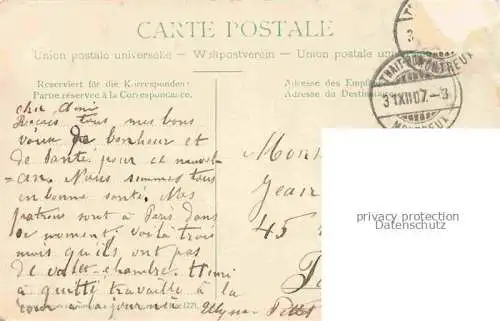 CARTE POSTALE
Union postale universelle — Weltpostverein — Unione postale
Reserviert für die Korrespondenz
Partie réservée à la Correspondance.
Adresse des
Adresse du
MONTREUX
31.XII.07.-3
MONTREUX
cher Ami
Recois tous mes bons
vœux de bonheur et
de santé pour ce nouvel
=an. Nous sommes tous
en bonne santé. Nos
patrons sont à Paris dans
ce moment. Voilà trois
mois qu'ils ont pas
de valet-chambre. Henri
a quitté travaille à la
à la journée
Ulysse
Mon
Jean
45
privacy protection
Datenschutz